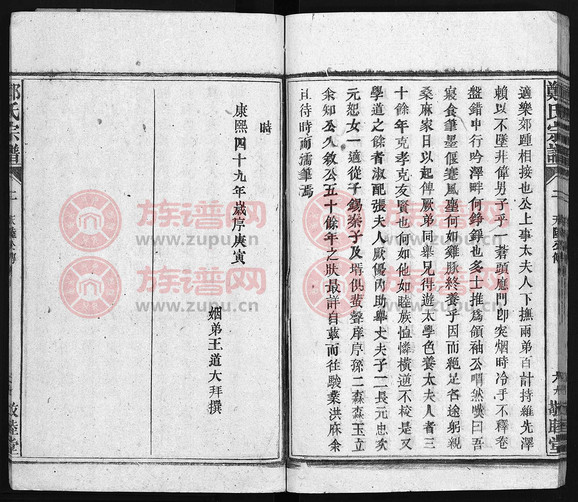 適樂郊踵相接也公上事太夫人下撫兩弟百計持維先澤
賴以不墜非偉男子乎一蒼頭應門卽突烟時冷乎不釋卷
盤錯中行吟澤畔何錚錚也多士推為領袖公喟然嘆曰吾
寢食筆墨偃蹇風塵何如雞豚終養乎因而絕足名途躬親
桑麻家日以起俾厥弟同舉兄得遊太學色養太夫人者三
十餘年克孝克友賢也何如他如睦族恤憐橫逆不校是又
學道之餘者淑配張夫人厥優內助舉丈夫子二長元忠次
元恕女一適從子錫泰子及壻俱蜚聲庠序孫二森森玉立
余知公久敘公五十餘年之狀最詳自茲而往駿業洪庥余
且待時而濡筆焉
時
康熙四十九年歲序庚寅
姻弟王道大拜撰
鄭氏宗譜
敬睦堂
鄭氏宗譜
敬睦堂
族谱网
www.zupu.cn
族谱网
www.zupu.cn
族谱网
www.zupu.cn
族谱网
www.zupu.cn